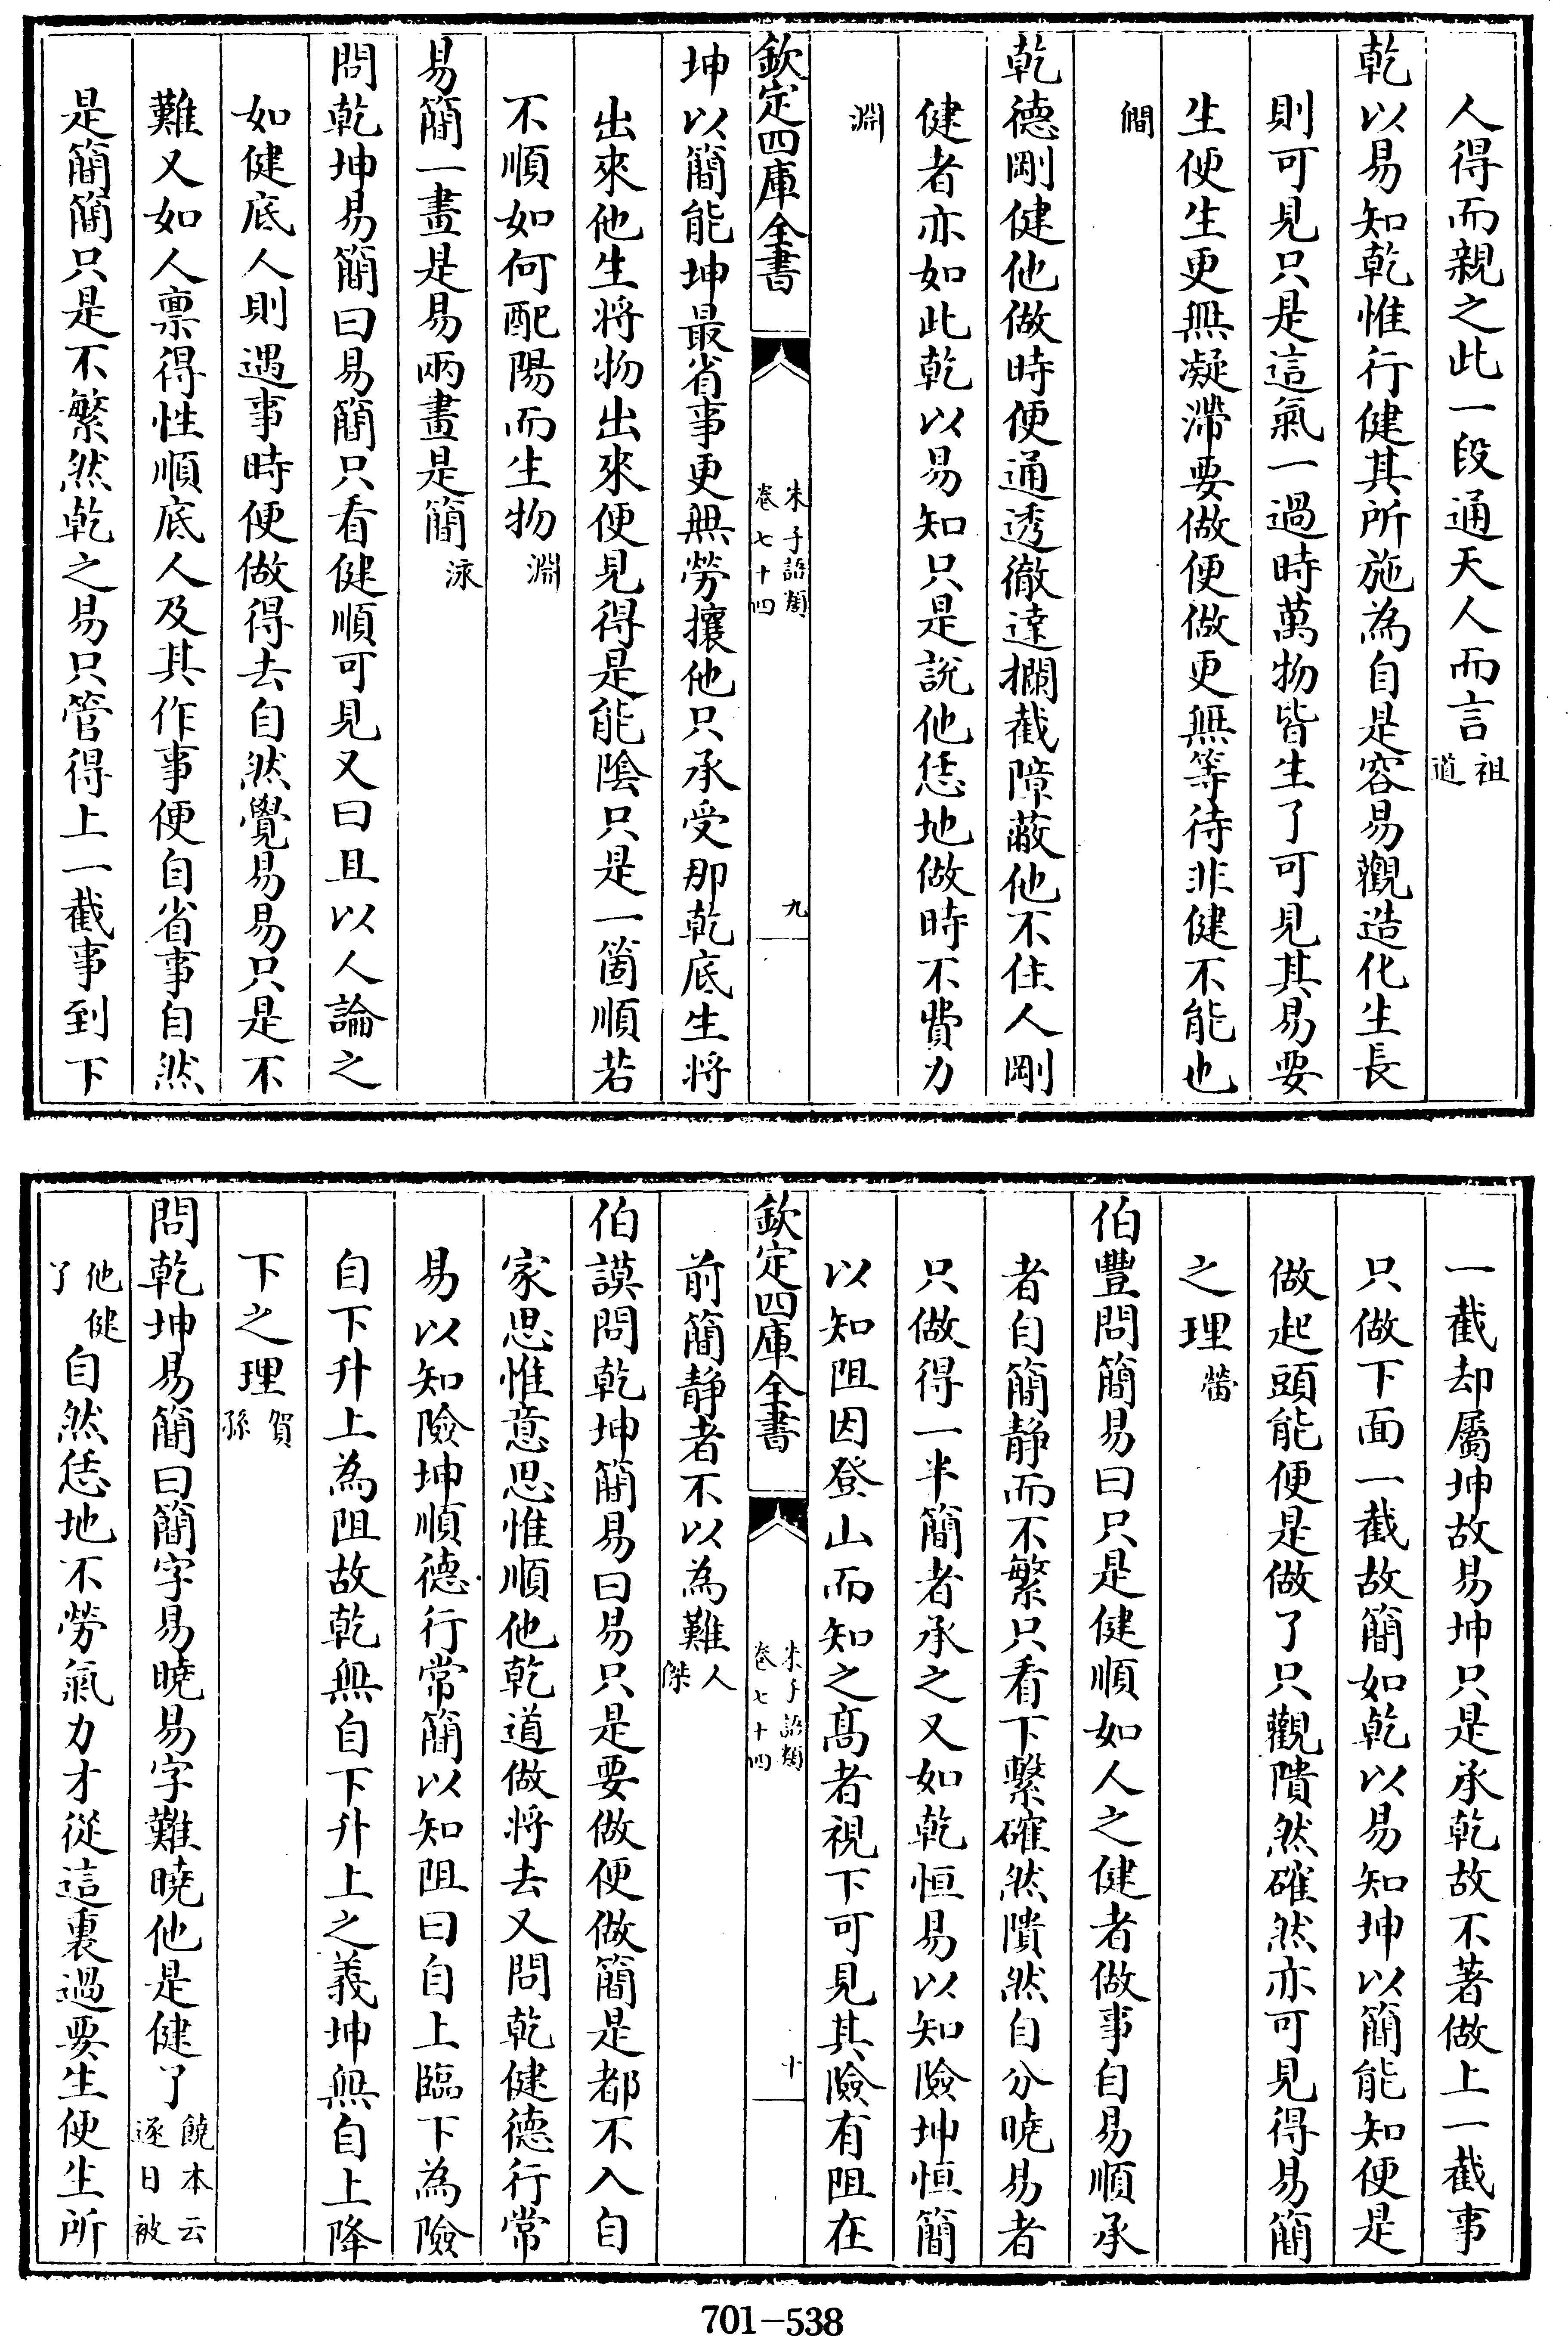 人得而親之此一段通天人而言祖道
乾以易知乾惟行健其所施為自是容易觀造化生長
則可見只是這氣一過時萬物皆生了可見其易要
生便生更無凝滯要做便做更無等待非健不能也
僩
乾德剛健他做時便通透徹達攔截障蔽他不住人剛
健者亦如此乾以易知只是說他恁地做時不費力
淵
欽定四庫全書 朱子語類卷七十四 九
坤以簡能坤最省事更無勞攘他只承受那乾底生將
出來他生將物出來便見得是能隂只是一箇順若
不順如何配陽而生物淵
易簡一畫是易兩畫是簡泳
問乾坤易簡曰易簡只看健順可見又曰且以人論之
如健底人則遇事時便做得去自然覺易易只是不
難又如人禀得性順底人及其作事便自省事自然
是簡簡只是不繁然乾之易只管得上一截事到下
一截却屬坤故易坤只是承乾故不著做上一截事
只做下面一截故簡如乾以易知坤以簡能知便是
做起頭能便是做了只觀隤然確然亦可見得易簡
之理㽦
伯豐問簡易曰只是健順如人之健者做事自易順承
者自簡静而不繁只看下繫確然隤然自分曉易者
只做得一半簡者承之又如乾恒易以知險坤恒簡
以知阻因登山而知之高者視下可見其險有阻在
欽定四庫全書 朱子語類卷七十四 十
前簡静者不以為難人傑
伯謨問乾坤簡易曰易只是要做便做簡是都不入自
家思惟意思惟順他乾道做將去又問乾健德行常
易以知險坤順德行常簡以知阻曰自上臨下為險
自下升上為阻故乾無自下升上之義坤無自上降
下之理賀孫
問乾坤易簡曰簡字易曉易字難曉他是健了饒本云逐日被
他健了自然恁地不勞氣力才從這裏過要生便生所
701-538